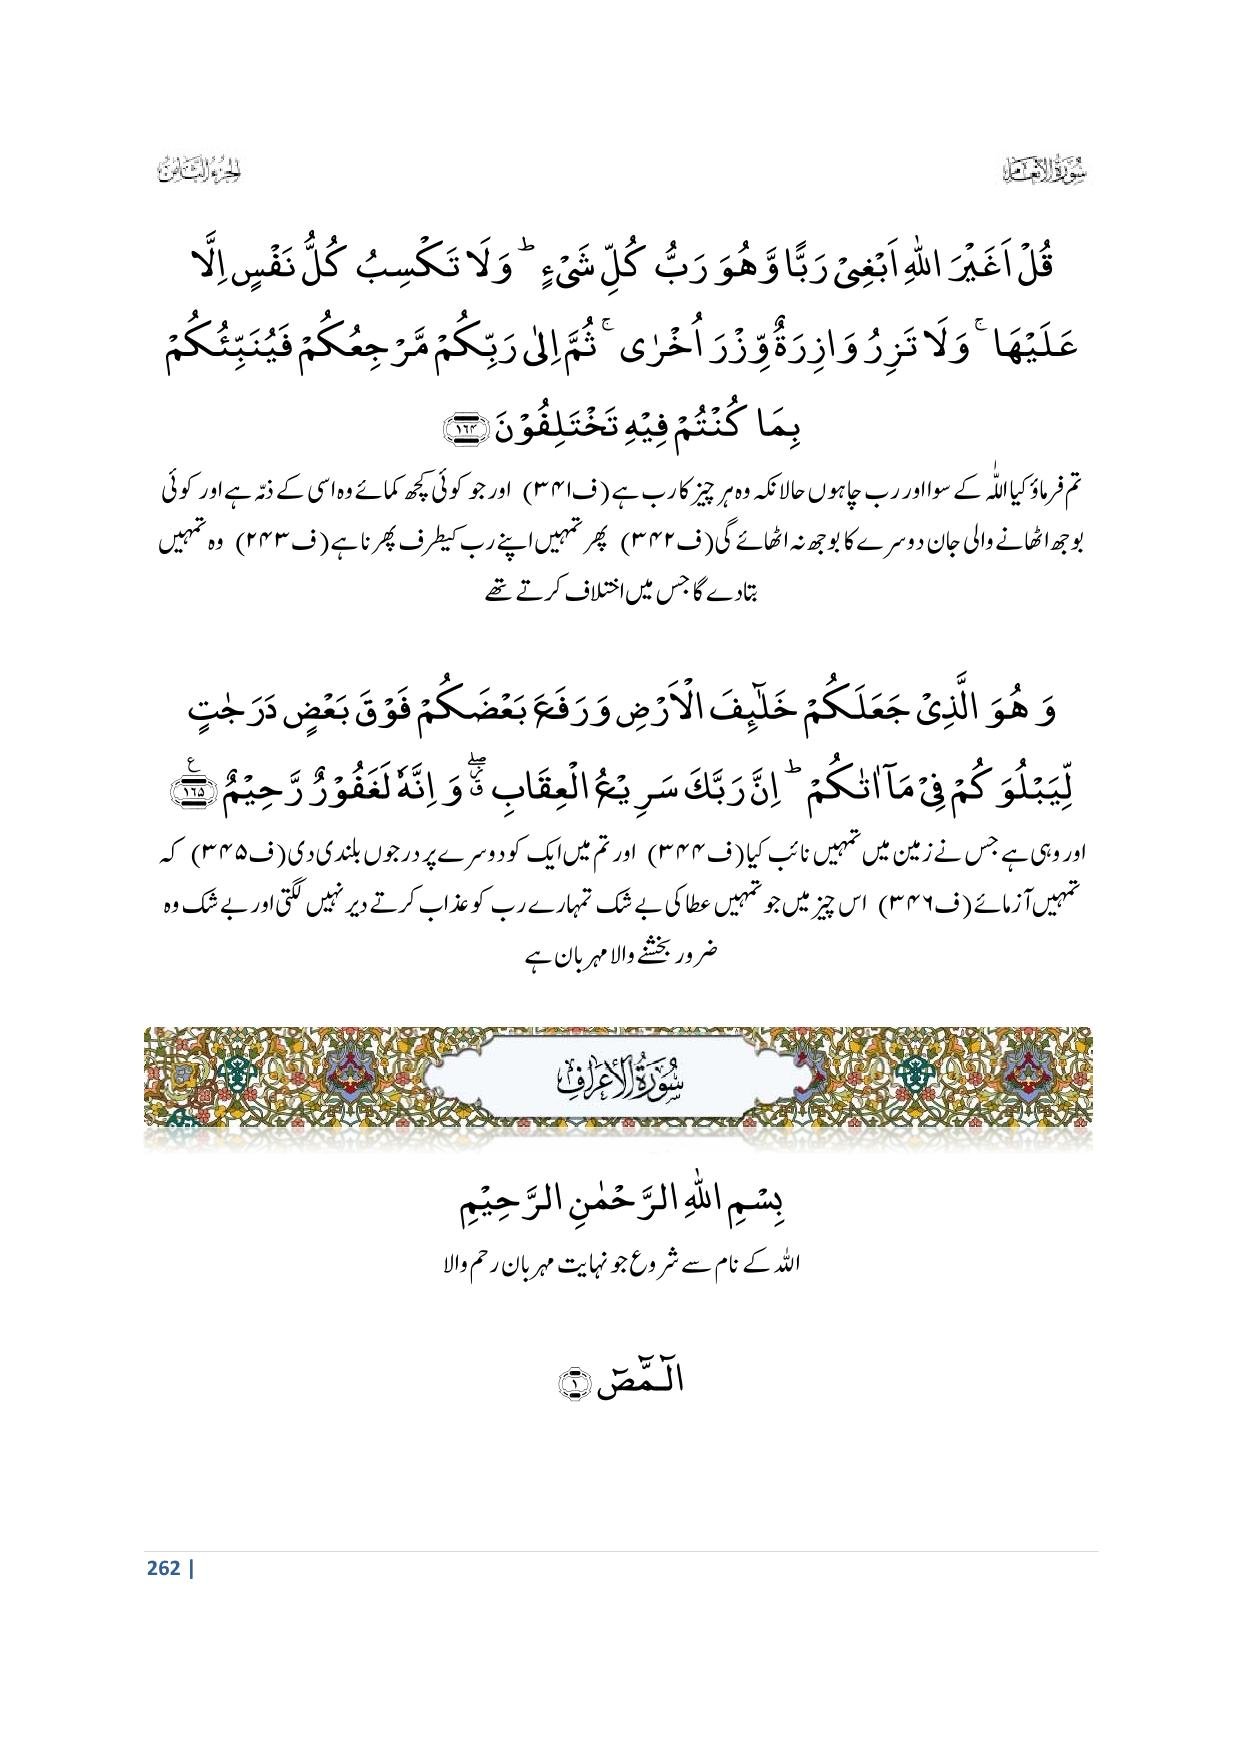 سُوۡرَةُ الۡاَنۡعَام
الجزء الثامن
قُلْ اَغَيْرَ اللّٰهِ اَبْغِيْ رَبًّا وَّ هُوَ رَبُّ كُلِّ شَيْءٍ ؕ وَ لَا تَكْسِبُ كُلُّ نَفْسٍ اِلَّا
عَلَيْهَا ۚ وَ لَا تَزِرُ وَازِرَةٌ وِّزْرَ اُخْرٰى ۚ ثُمَّ اِلٰى رَبِّكُمْ مَّرْجِعُكُمْ فَيُنَبِّئُكُمْ
بِمَا كُنْتُمْ فِيْهِ تَخْتَلِفُوْنَ ﴿۱۶۴﴾
تم فرماؤ کیا اللّٰہ کے سوا اور رب چاہوں حالانکہ وہ ہر چیز کا رب ہے (ف۳۴۱) اور جو کوئی کچھ کمائے وہ اسی کے ذمّہ ہے اور کوئی
بوجھ اٹھانے والی جان دوسرے کا بوجھ نہ اٹھائے گی (ف۳۴۲) پھر تمہیں اپنے رب کیطرف پھرنا ہے (ف۲۴۳) وہ تمہیں
بتادے گا جس میں اختلاف کرتے تھے
وَ هُوَ الَّذِيْ جَعَلَكُمْ خَلٰٓئِفَ الْاَرْضِ وَ رَفَعَ بَعْضَكُمْ فَوْقَ بَعْضٍ دَرَجٰتٍ
لِّيَبْلُوَكُمْ فِيْ مَاۤ اٰتٰىكُمْ ؕ اِنَّ رَبَّكَ سَرِيْعُ الْعِقَابِ ۖ٘ وَ اِنَّهٗ لَغَفُوْرٌ رَّحِيْمٌ ﴿۱۶۵﴾ ع
اور وہی ہے جس نے زمین میں تمہیں نائب کیا (ف۳۴۴) اور تم میں ایک کو دوسرے پر درجوں بلندی دی (ف۳۴۵) کہ
تمہیں آزمائے (ف۳۴۶) اس چیز میں جو تمہیں عطا کی بے شک تمہارے رب کو عذاب کرتے دیر نہیں لگتی اور بے شک وہ
ضرور بخشنے والا مہربان ہے
سُوۡرَةُ الۡاَعۡرَاف
بِسْمِ اللّٰهِ الرَّحْمٰنِ الرَّحِيْمِ
اللّٰہ کے نام سے شروع جو نہایت مہربان رحم والا
الٓـمّٓصٓ ﴿۱﴾
262 |